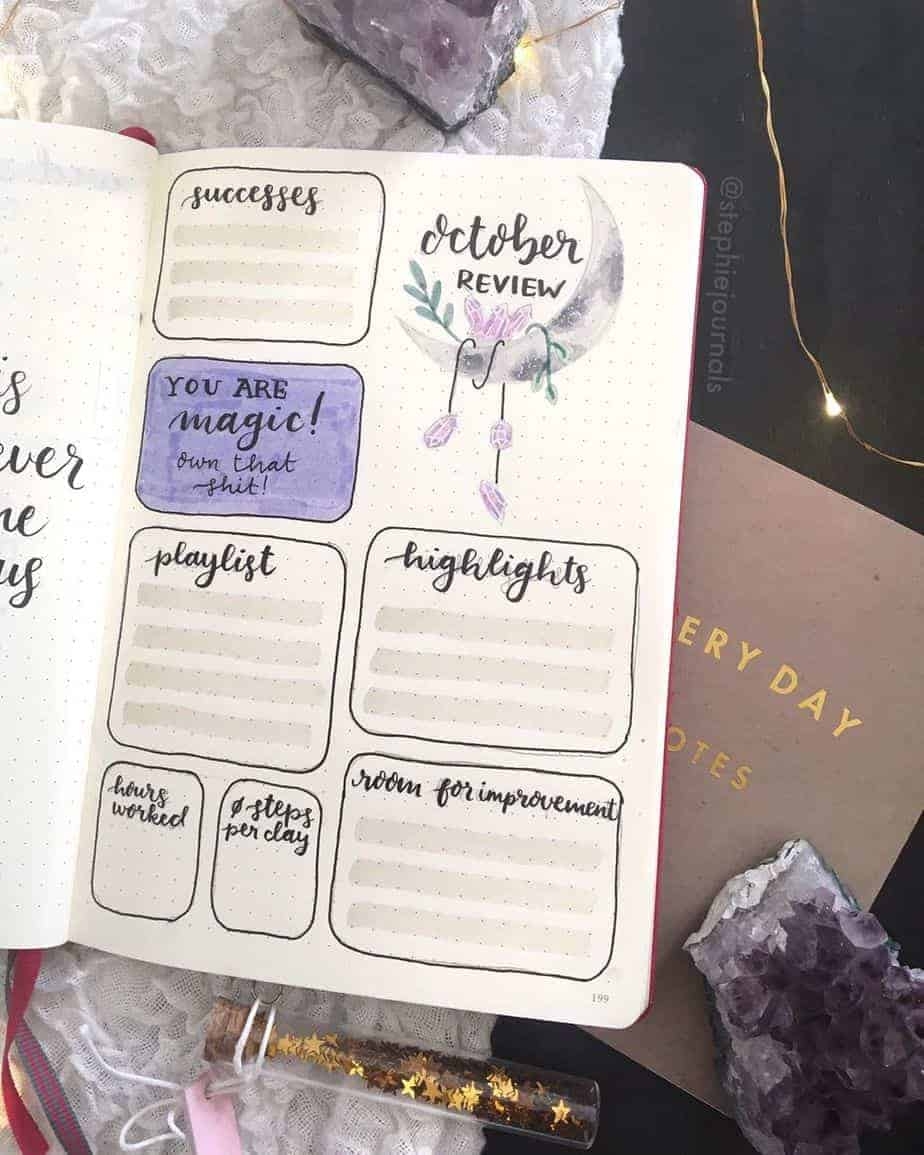 successes
october
REVIEW
YOU ARE
magic!
own that
shit!
playlist
highlights
hours
worked
ø steps
per day
room for improvement
199
is
us
@stephiejournals
ERY DAY
OTES